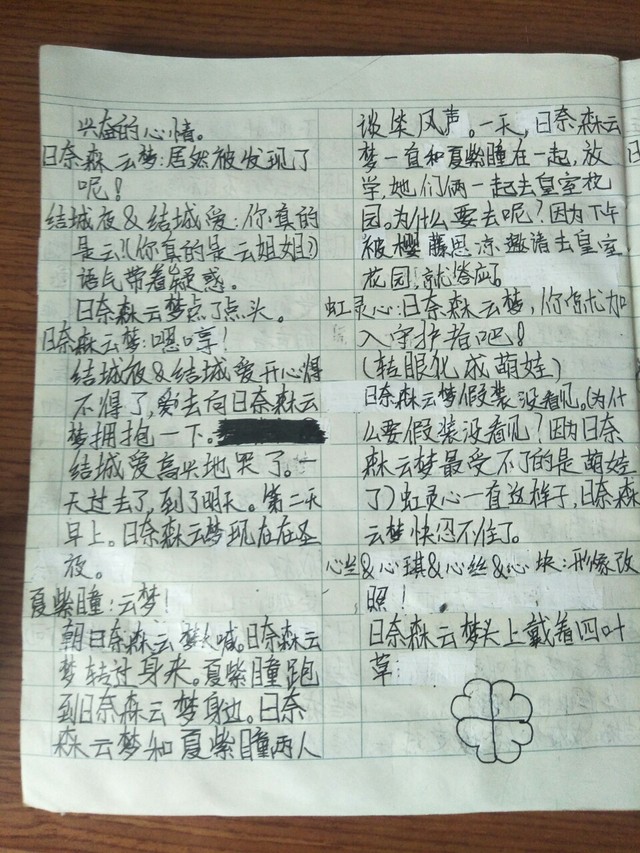 兴奋的心情。
日奈森云梦:居然被发现了
呢!
结城夜&结城爱:你真的
是云!(你真的是云姐姐?)
语气带着疑惑。
日奈森云梦点了点头。
日奈森云梦:嗯哼!
结城夜&结城爱开心得
不得了,爱去向日奈森云
梦拥抱一下。
结城爱高兴地哭了。一
天过去了,到了明天。第二天
早上。日奈森云梦现在在圣
夜。
夏紫瞳:云梦!
朝日奈森云梦大喊。日奈森云
梦转过身来。夏紫瞳跑
到日奈森云梦身边。日奈
森云梦和夏紫瞳两人
谈笑风声。一天,日奈森云
梦一直和夏紫瞳在一起,放
学,她们俩一起去皇室花
园。为什么要去呢?因为下午
被樱藤思凉邀请去皇室
花园,就答应了
虹灵心:日奈森云梦,你就加
入守护者吧!
(转眼化成萌娃)
日奈森云梦假装没看见。(为什
么要假装没看见?因为日奈
森云梦最受不了的是萌娃
了)虹灵心一直这样子,日奈森
云梦快忍不住了。
心丝&心琪&心丝&心块:形像改
照!
日奈森云梦头上戴着四叶
草: